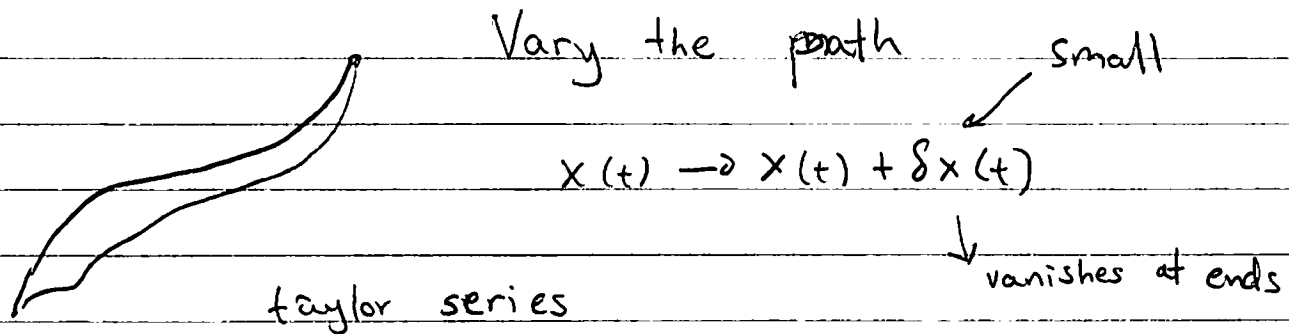 Vary the path
small
x(t) → x(t) + δx(t)
vanishes at ends
taylor series